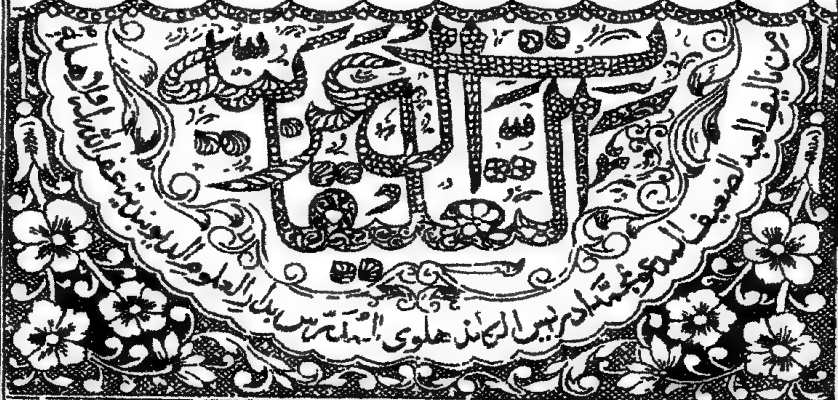 التعليقات العربية
من تاليف العبد الضعيف المدعو بمحمد ادريس الكاندهلوى المدرس بدار العلوم الديوبندية غفر الله له